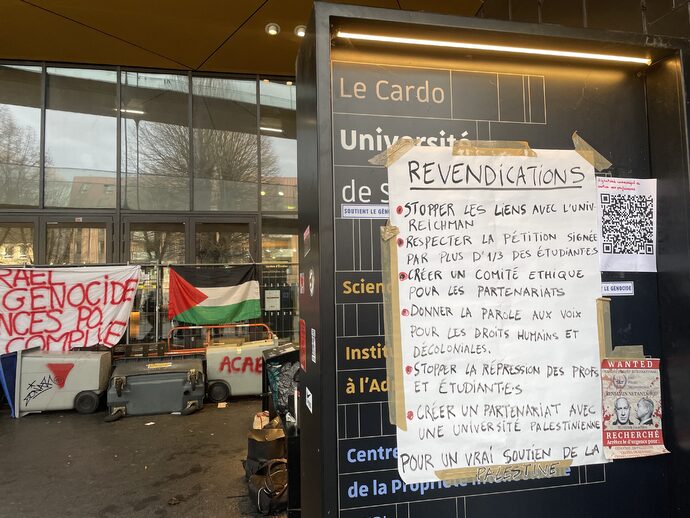 Le Cardo
Université
de S
SOUTIENT LE GÉNOC
Scien
Institu
à l'Ad
Centre
de la Propriété
REVENDICATIONS
STOPPER LES LIENS AVEC L'UNIV.
REICHMAN
RESPECTER LA PÉTITION SIGNÉE
PAR PLUS D'1/3 DES ÉTUDIANTES
CRÉER UN COMITÉ ETHIQUE
POUR LES PARTENARIATS
DONNER LA PAROLE AUX VOIX
POUR LES DROITS HUMAINS ET
DÉCOLONIALES.
STOPPER LA RÉPRESSION DES PROFS
ET ÉTUDIANT·E·S
CRÉER UN PARTENARIAT AVEC
UNE UNIVERSITÉ PALESTINIENNE
POUR UN VRAI SOUTIEN DE LA
PALESTINE
LE GENOCIDE
WANTED
RECHERCHÉ
RAEL
GENOCIDE
NCES PO
COMPLICE
ACAB